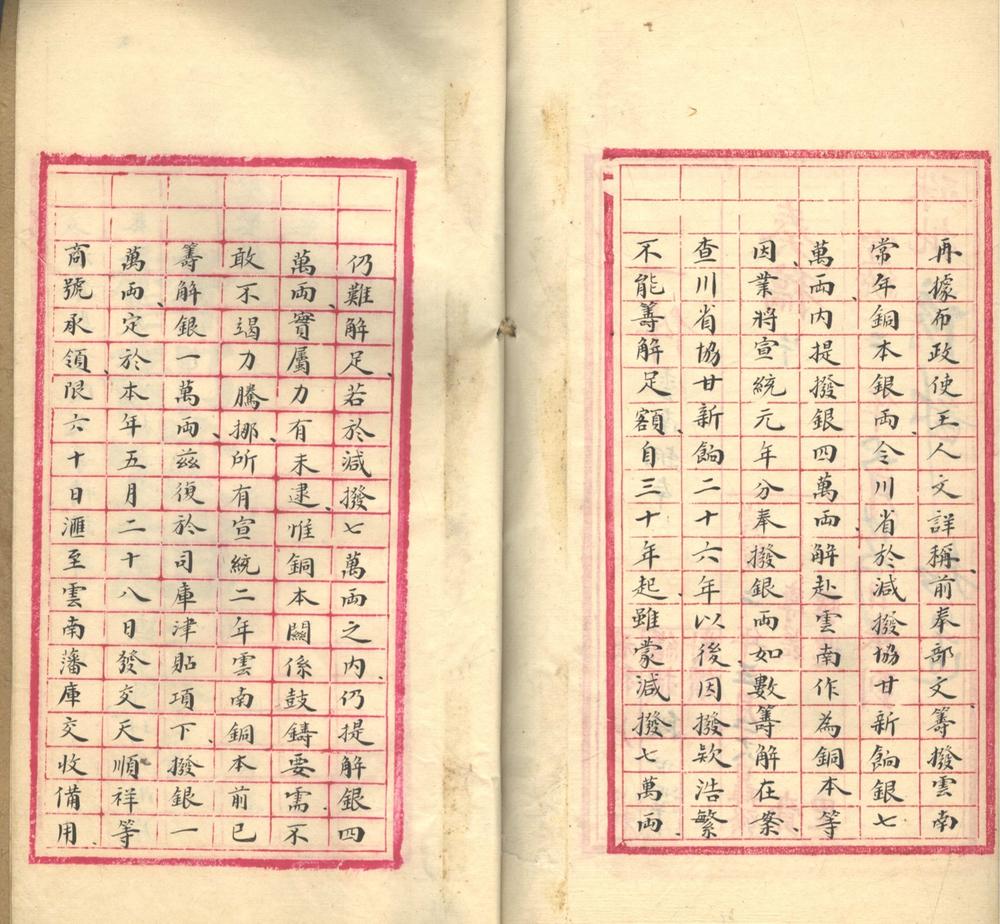 再據布政使王人文詳稱、前奉部文、籌撥雲南
常年銅本銀両、令川省於減撥協甘新餉銀七
萬両、內提撥銀四萬両、解赴雲南作為銅本等
因、業將宣統元年分奉撥銀両、如數籌解在案、
查川省協甘新餉、二十六年以後因撥欵浩繁
不能籌解足額、自三十年起、雖蒙減撥七萬両、
仍難解足、若於減撥七萬両之內、仍提解銀四
萬両、實屬力有未逮、惟銅本關係鼓鑄要需、不
敢不竭力騰挪、所有宣統二年雲南銅本前已
籌解銀一萬両、茲復於司庫津貼項下、撥銀一
萬両、定於本年五月二十八日發交天順祥等
商號承領、限六十日滙至雲南藩庫交收備用、